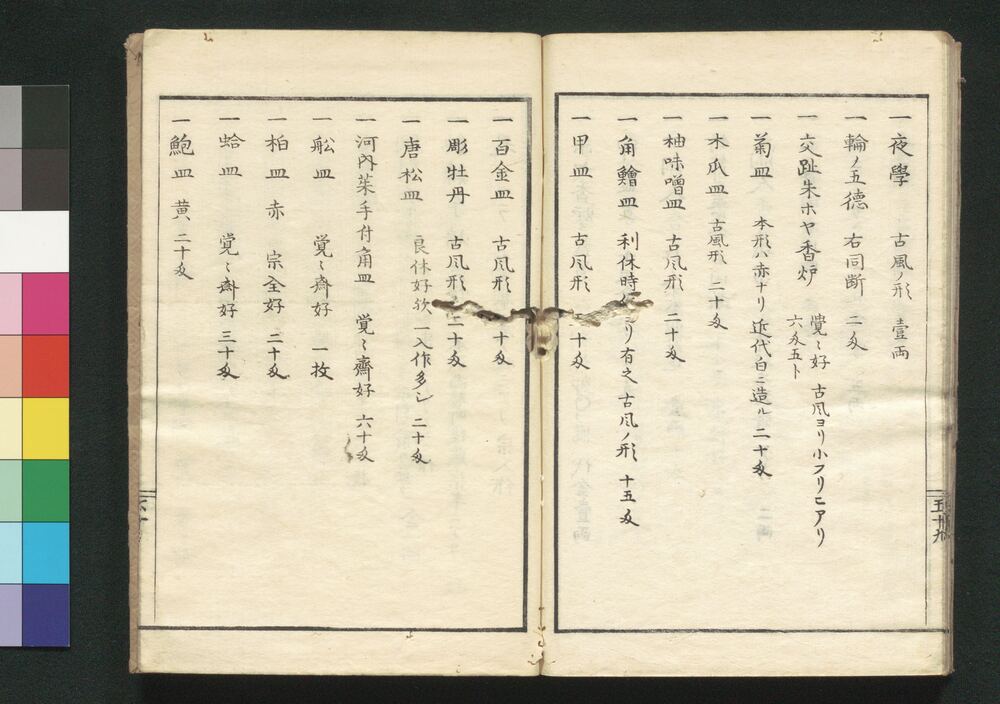 一夜學 古風ノ形 壹両
一輪ノ五德 右同断 二匁
一交趾朱ホヤ香炉 覺〻好 古凨ヨリ小フリニアリ
六匁五ト
一菊皿 本形ハ赤ナリ 近代白ニ造ル 二十匁
一木瓜皿 古風形 二十匁
一柚味噌皿 古凨形 二十匁
一角鱠皿 利休時 ヨリ有之 古凨ノ形 十五匁
一甲皿 古凨形 十匁
一百金皿 古凨形 十匁
一彫牡丹 古凨形 二十匁
一唐松皿 良休好欤 一入作多シ 二十匁
一河内菜手付角皿 覚〻齋好 六十匁
一舩皿 覚〻齋好 一枚
一柏皿 赤 宗全好 二十匁
一蛤皿 覚〻齋好 三十匁
一鮑皿 黄 二十匁
五十九
六十